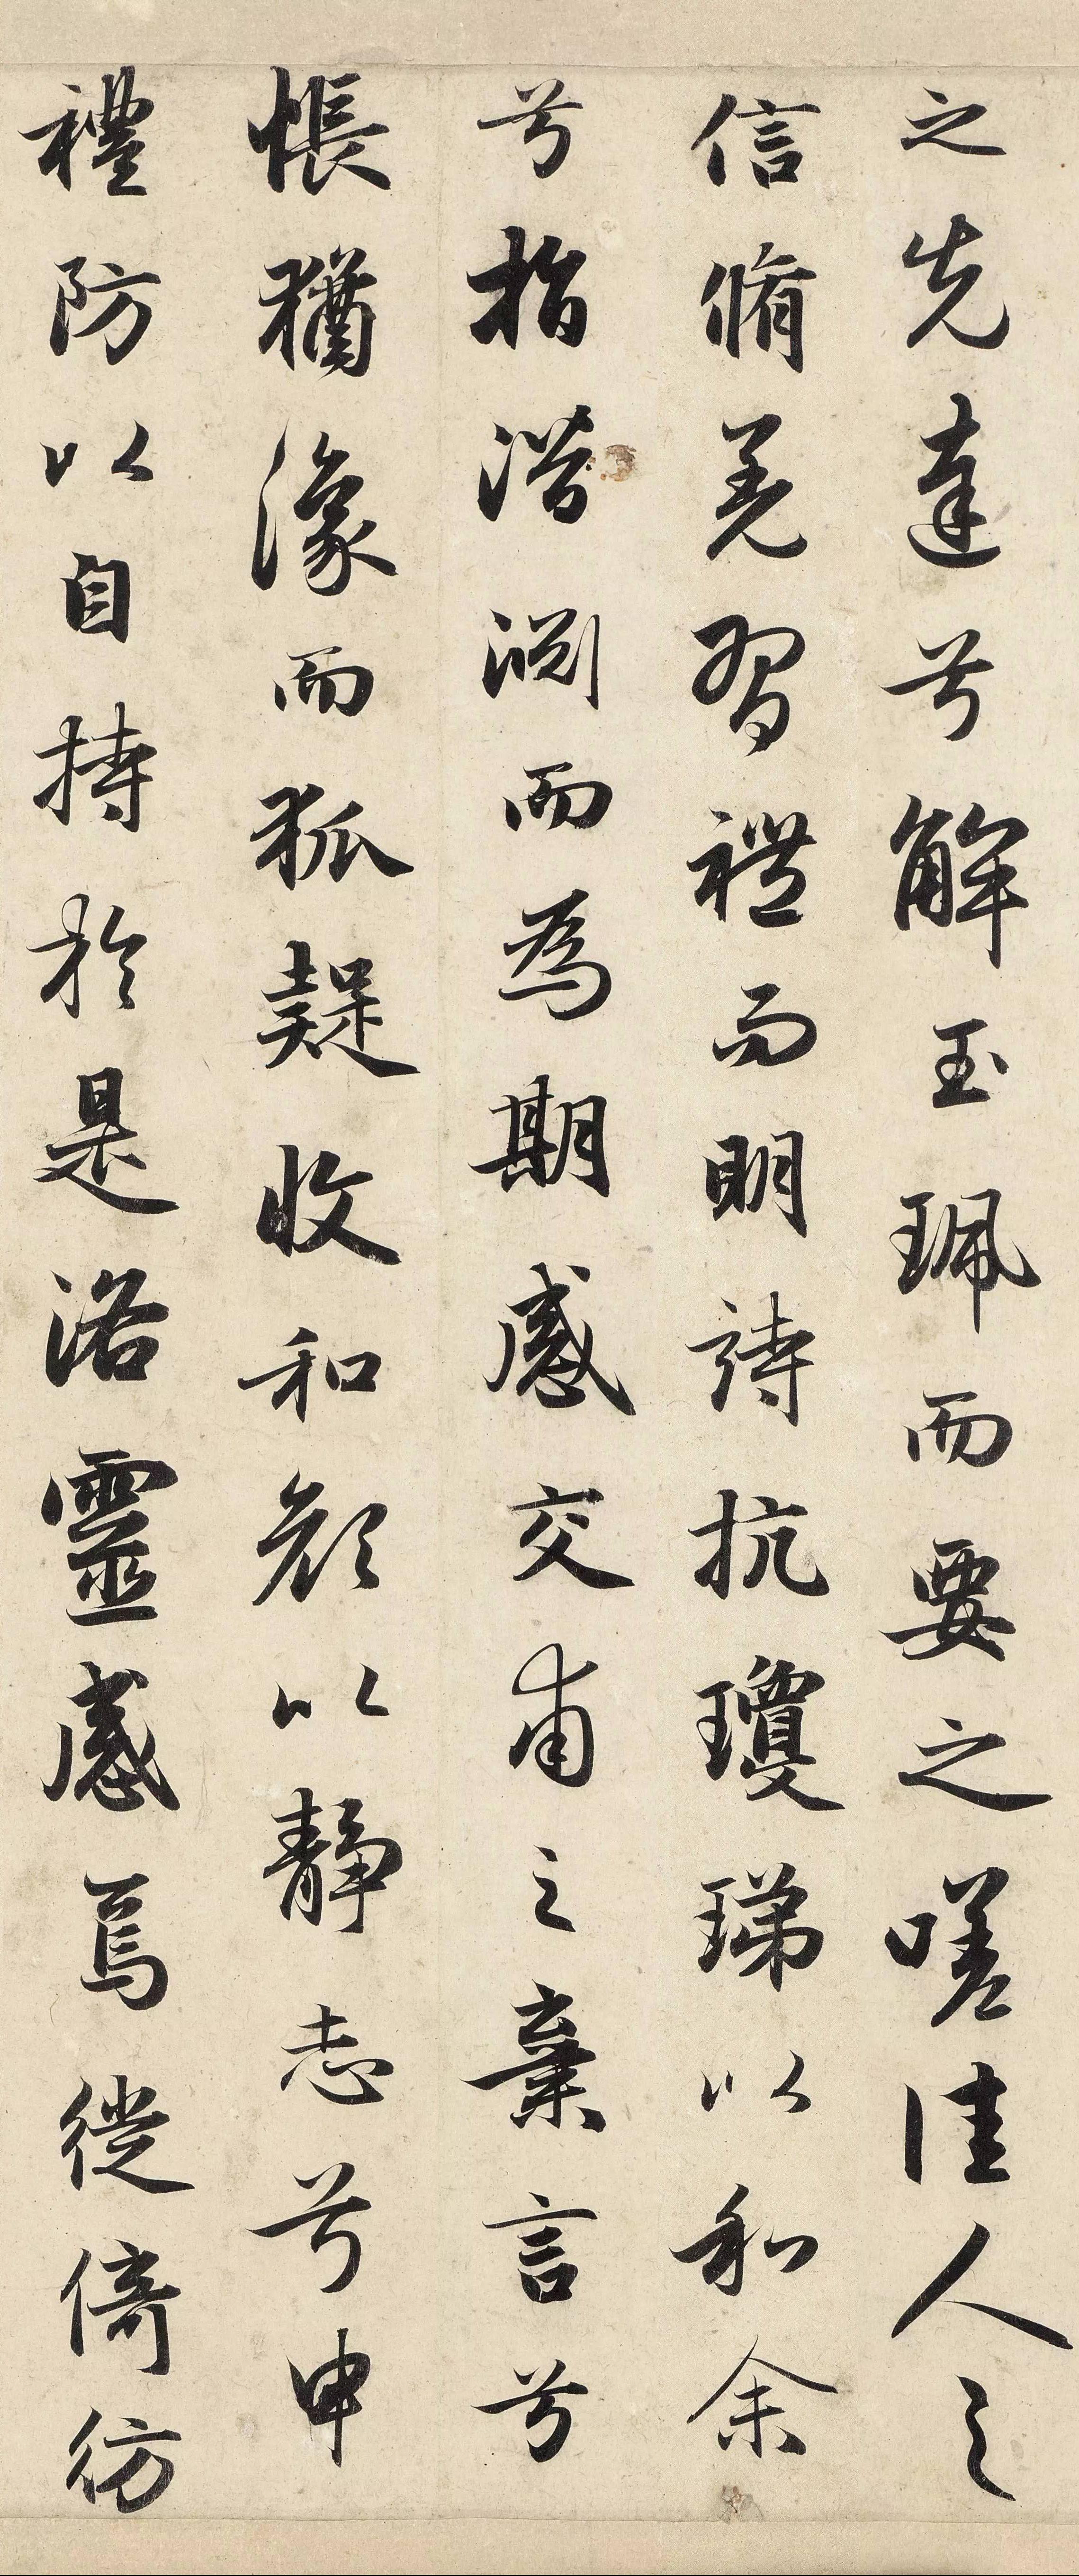 之先達兮解玉珮而要之嗟佳人之
信脩羌習禮而明詩抗瓊珶以和余
兮指潛淵而為期感交甫之棄言兮
悵猶豫而狐疑收和顏以靜志兮申
禮防以自持於是洛靈感焉徙倚彷